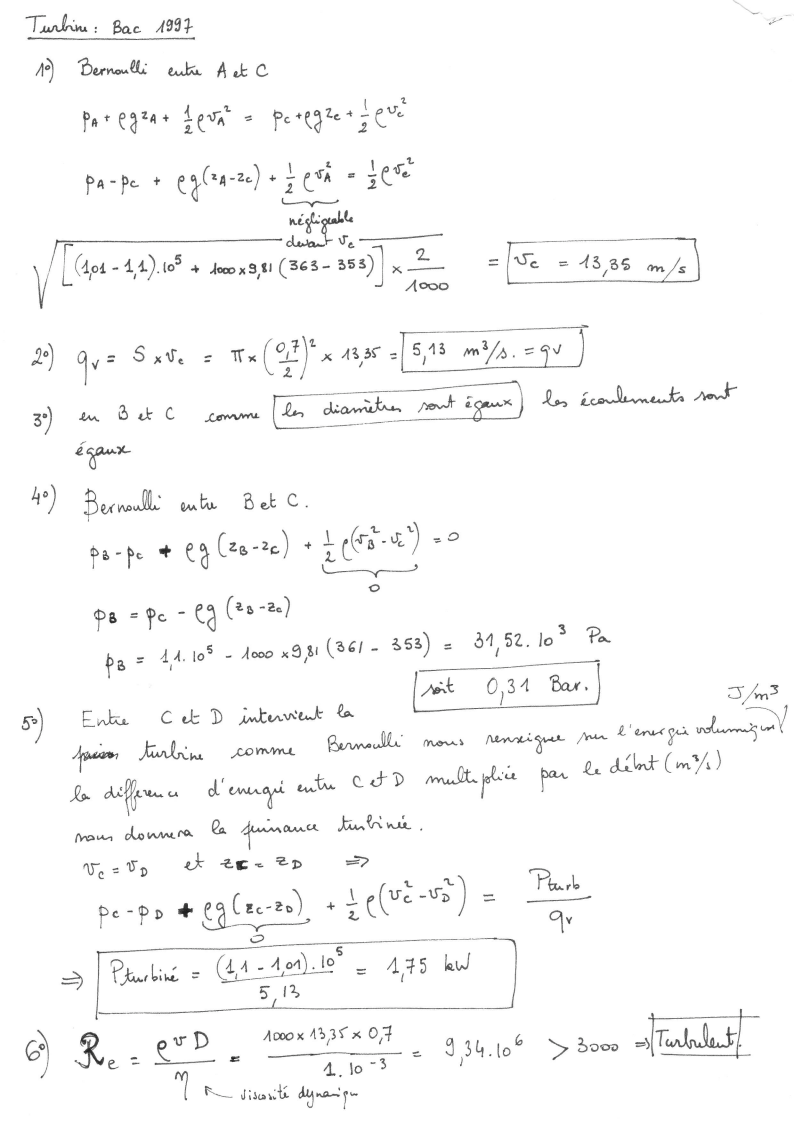 Turbine : Bac 1997
1°) Bernoulli entre A et C
pA + ρgzA + 1/2 ρvA² = pC + ρgzC + 1/2 ρvC²
pA - pC + ρg(zA - zC) + 1/2 ρvA² = 1/2 ρvC²
négligeable
devant vC
√([(1,01 - 1,1).10⁵ + 1000 × 9,81 (363 - 353)] × 2/1000) = vC = 13,35 m/s
2°) qv = S × vC = π × (0,7/2)² × 13,35 = 5,13 m³/s. = qv
3°) en B et C comme les diamètres sont égaux, les écoulements sont
égaux
4°) Bernoulli entre B et C.
pB - pC + ρg(zB - zC) + 1/2 ρ(vB² - vC²) = 0
0
pB = pC - ρg(zB - zC)
pB = 1,1.10⁵ - 1000 × 9,81 (361 - 353) = 31,52.10³ Pa
soit 0,31 Bar.
J/m³
5°) Entre C et D intervient la
turbine comme Bernoulli nous renseigne sur l'energie volumique
la différence d'energie entre C et D multipliée par le débit (m³/s)
nous donnera la puissance turbinée.
vC = vD et zC = zD ⇒
pC - pD + ρg(zC - zD) + 1/2 ρ(vC² - vD²) = Pturb/qv
0
⇒ Pturbiné = (1,1 - 1,01).10⁵/5,13 = 1,75 kW
6°) Re = ρvD/η = 1000 × 13,35 × 0,7/1.10⁻³ = 9,34.10⁶ > 3000 ⇒ Turbulent.
viscosité dynamique